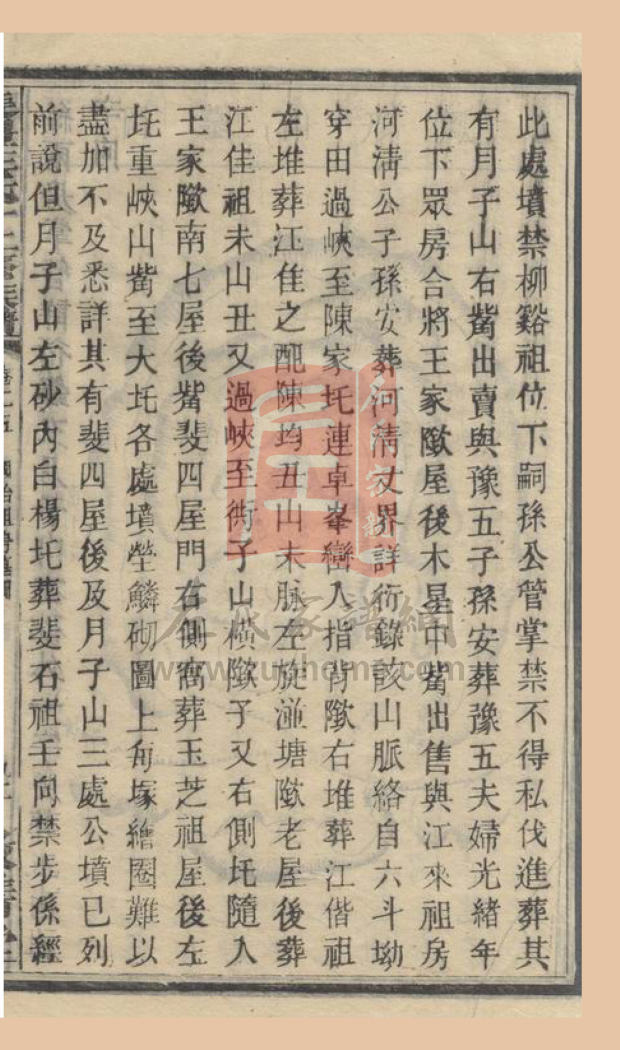 此處墳禁柳谿祖位下嗣孫公管掌禁不得私伐進葬其
有月子山右觜出賣與豫五子孫安葬豫五夫婦光緒年
位下眾房合將王家隞屋後木星中觜出售與江來祖房
河清公子孫安葬河清丈界詳衍錄該山脈絡自六斗坳
穿田過峽至陳家圫連卓峯巒入指背隞右堆葬江偕祖
左堆葬江佳之配陳均丑山未脉左旋湴塘隞老屋後葬
江佳祖未山丑又過峽至衖子山橫隞子又右側圫隨入
王家隞南七屋後觜斐四屋門右側窩葬玉芝祖屋後左
圫重峽山觜至大圫各處墳塋鱗砌圖上每塚繪圈難以
盡加不及悉詳其有斐四屋後及月子山三處公墳已列
前說但月子山左砂內白楊圫葬斐石祖壬向禁步係經
www.xunhome.com